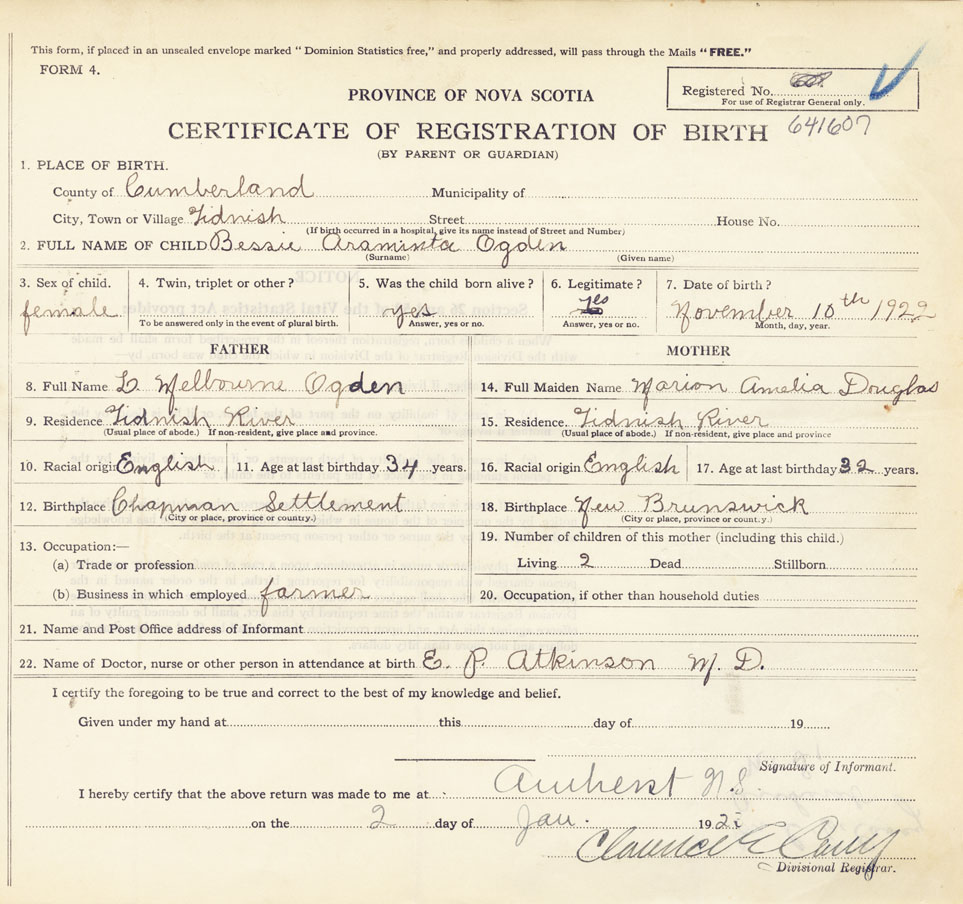 This form, if placed in an unsealed envelope marked "Dominion Statistics free," and properly addressed, will pass through the Mails "FREE."
FORM 4.
Registered No.
For use of Registrar General only.
PROVINCE OF NOVA SCOTIA
CERTIFICATE OF REGISTRATION OF BIRTH 641607
(BY PARENT OR GUARDIAN)
1. PLACE OF BIRTH.
County of Cumberland Municipality of
City, Town or Village Tidnish Street House No.
(If birth occurred in a hospital, give its name instead of Street and Number)
2. FULL NAME OF CHILD Bessie Araminta Ogden
(Surname) (Given name)
3. Sex of child. 4. Twin, triplet or other? 5. Was the child born alive? 6. Legitimate? 7. Date of birth?
female yes Yes November 10th 1922
To be answered only in the event of plural birth. Answer, yes or no. Answer, yes or no. Month, day, year.
FATHER MOTHER
8. Full Name L Melbourne Ogden 14. Full Maiden Name Marion Amelia Douglas
9. Residence Tidnish River 15. Residence. Tidnish River
(Usual place of abode.) If non-resident, give place and province. (Usual place of abode.) If non-resident, give place and province
10. Racial origin English 11. Age at last birthday 34 years. 16. Racial origin English 17. Age at last birthday 32 years.
12. Birthplace Chapman Settlement 18. Birthplace New Brunswick
(City or place, province or country.) (City or place, province or count.y.)
13. Occupation:— 19. Number of children of this mother (including this child.)
(a) Trade or profession Living 2 Dead Stillborn
(b) Business in which employed farmer 20. Occupation, if other than household duties
21. Name and Post Office address of Informant
22. Name of Doctor, nurse or other person in attendance at birth E. P. Atkinson M. D.
I certify the foregoing to be true and correct to the best of my knowledge and belief.
Given under my hand at this day of 19
Signature of Informant.
I hereby certify that the above return was made to me at Amherst N.S.
on the 2 day of Jan. 192
Clarence E
Divisional Registrar.